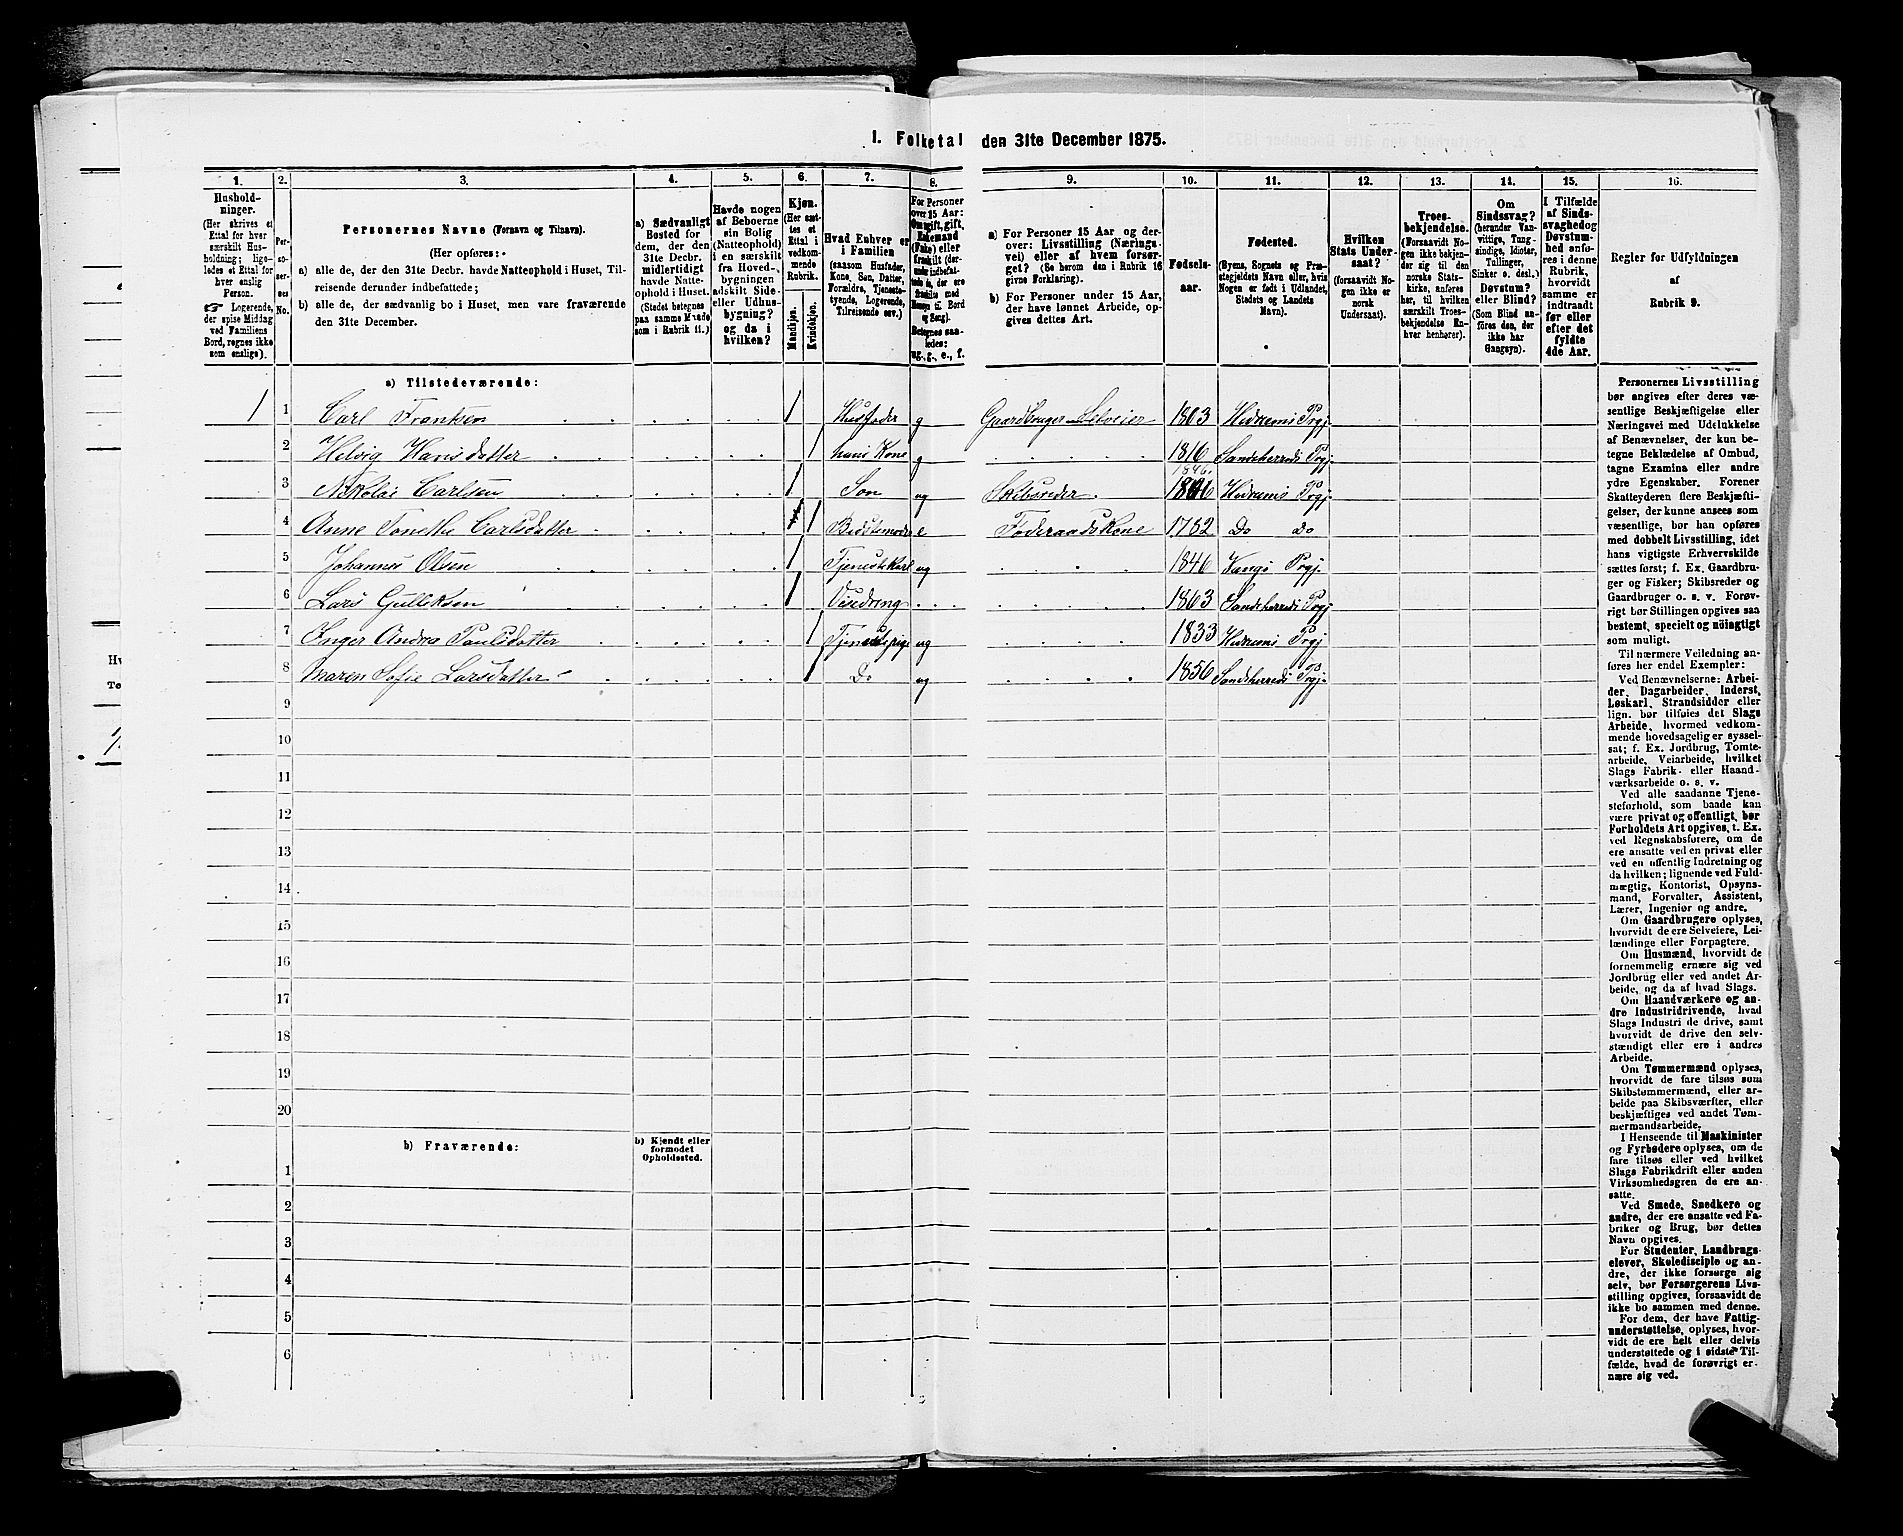 I. Folketal den 31te December 1875.
1. 2. 3. 4. 5. 6. 7. 8. 9. 10. 11. 12. 13. 14. 15. 16.
Husholdninger.
(Her skrives et
Ettal for hver
særskilt Husholdning;
ligeledes et Ettal for
hver enslig
Person.
☞ Logerende,
der spise Middag
ved Familiens
Bord, regnes ikke
som enslige).
Personernes No.
Personernes Navne (Fornavn og Tilnavn).
(Her opføres:
a) alle de, der den 31te Decbr. havde Natteophold i Huset, Tilreisende derunder indbefattede;
b) alle de, der sædvanlig bo i Huset, men vare fraværende
den 31te December.
a) Sædvanligt
Bosted for
dem, der den
31te Decbr.
midlertidigt
havde Natteophold i Huset.
(Stedet betegnes
paa samme Maade
som i Rubrik 11.)
Havde nogen
af Beboerne
sin Bolig
(Natteophold)
i en særskilt
fra Hovedbygningen
adskilt Side-
eller Udhusbygning?
og da i
hvilken?
Kjøn.
(Her sættes et
Ettal i
vedkommende
Rubrik.
Mandkjøn.
Kvindekjøn.
Hvad Enhver er
i Familien
(saasom Husfader,
Kone, Søn, Datter,
Forældre, Tjenestetyende, Logerende,
Tilreisende osv.)
For Personer
over 15 Aar:
Om ugift, gift,
Enkemand
(Enke) eller
fraskilt
Betegnes saaledes:
ug., g., e., f.
a) For Personer 15 Aar og derover: Livsstilling (Næringsvei) eller af hvem forsørget? (Se herom den i Rubrik 16
givne Forklaring).
b) For Personer under 15 Aar,
der have lønnet Arbeide, opgives dettes Art.
Fødselsaar.
Fødested.
(Byens, Sognets og Præstegjeldets Navn eller, hvis
Nogen er født i Udlandet,
Stadets og Landets
Navn).
Hvilken
Stats Undersaat?
(forsaavidt Nogen ikke er
norsk
Undersaat).
Troesbekjendelse.
(Forsaavidt Nogen ikke bekjender sig til den
norske Statskirke, anføres
her, til hvilken
særskilt Troesbekjendelse Enhver henhører).
Om
Sindssvag?
(herunder Vanvittige, Tungsindige, Idioter,
Tullinger,
Sinker o. desl.)
Døvstum?
eller Blind?
(Som Blind anføres den, der
ikke har
Gangsyn).
I Tilfælde
af Sindssvaghed og
Døvstumhed anføres i denne
Rubrik,
hvorvidt
samme er
indtraadt
før eller
efter det
fyldte
4de Aar.
Regler for Udfyldningen
af
Rubrik 9.
a) Tilstedeværende:
1 1 Carl Frantsen 1 Husfader g Gaardbruger Selveier 1803 Hedrums Prgj
2 Helvig Hansdatter 1 hans Kone g 1816 Sandeherreds Prgj.
3 Nikolai Carlsen 1 Søn ug Skibsreder 1846. 1846 Hedrums Prgj
4 Anne Tonethe Carlsdatter 1 Bedstemoder e Føderaadskone 1782 Do Do
5 Johannes Olsen 1 Tjenestekarl ug 1846 Prgj.
6 Lars Gulleksen 1 Visedreng 1863 Sandeherreds Prgj.
7 Inger Andrea Paulsdatter 1 Tjenestepige ug 1833 Hedrums Prgj
8 Maren Sofie Larsdatter 1 Do ug 1856 Sandeherreds Prgj.
9
10
11
12
13
14
15
16
17
18
19
20
b) Fraværende:
b) Kjendt eller
formodet
Opholdssted.
1
2
3
4
5
6
Personernes Livsstilling
bør angives efter deres væsentlige Beskjæftigelse eller
Næringsvei med Udelukkelse
af Benævnelser, der kun betegne Beklædelse af Ombud,
tagne Examina eller andre
ydre Egenskaber. Forener
Skatteyderen flere Beskjæftigelser, der kunne ansees som
væsentlige, bør han opføres
med dobbelt Livsstilling, idet
hans vigtigste Erhvervskilde
sættes først; f. Ex. Gaardbruger og Fisker; Skibsreder og
Gaardbruger o. s. v. Forøvrigt bør Stillingen opgives saa
bestemt, specielt og nøiagtigt
som muligt.
Til nærmere Veiledning anføres her endel Exempler:
Ved Benævnelserne: Arbeider, Dagarbeider, Inderst,
Løskarl, Strandsidder eller
lign. bør tilføies det Slags
Arbeide, hvormed vedkommende hovedsagelig er sysselsat; f. Ex. Jordbrug, Tomtearbeide, Veiarbeide, hvilket
Slags Fabrik- eller Haandværksarbeide o. s. v.
Ved alle saadanne Tjenesteforhold, som baade kan
være privat og offentligt, bør
Forholdets Art opgives, t. Ex.
ved Regnskabsførere, om de
ere ansatte ved en privat eller
ved en offentlig Indretning og
da hvilken; lignende ved Fuldmægtig, Kontorist, Opsynsmand, Forvalter, Assistent,
Lærer, Ingeniør og andre.
Om Gaardbrugere oplyses,
hvorvidt de ere Selveiere, Leilændinge eller Forpagtere.
Om Husmænd, hvorvidt de
fornemmelig ernære sig ved
Jordbrug eller ved andet Arbeide, og da af hvad Slags.
Om Haandværkere og andre Industridrivende, hvad
Slags Industri de drive, samt
hvorvidt de drive den selvstændigt eller ere i andres
Arbeide.
Om Tømmermænd oplyses,
hvorvidt de fare tilsøs som
Skibstømmermænd, eller arbeide paa Skibsværfter, eller
beskjæftiges ved andet Tømmermandsarbeide.
I Henseende til Maskinister
og Fyrbødere oplyses, om de
fare tilsøs eller ved hvilket
Slags Fabrikdrift eller anden
Virksomhedsgren de ere ansatte.
Ved Smede, Snedkere og
andre, der ere ansatte ved Fabriker og Brug, bør dettes
Navn opgives.
For Studenter, Landbrugselever, Skoledisciple og andre, der ikke forsørge sig
selv, bør Forsørgerens Livsstilling opgives, forsaavidt de
ikke bo sammen med denne.
For dem, der have Fattigunderstøttelse, oplyses, hvorvidt de ere helt eller delvis
understøttede og i sidste Tilfælde, hvad de forøvrigt ernære sig ved.